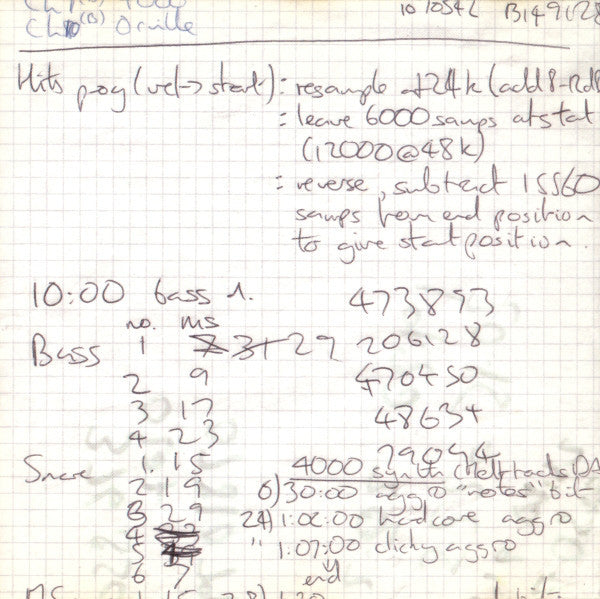 10 1054L B149128
Ch 10 (B) Orville
Hits prog (vel->start): resample at 24k (add 8-12dB
: leave 6000 samps at start
(12000@48k)
: reverse, subtract 15560
samps from end position
to give start position.
10:00 bass 1.
473893
no. ms
Bass 1 29 206128
2 9 470450
3 17 48634
4 23 29094
Snare 1. 15 4000 synth
2 19 6) 30:00 aggro "notes" bit
3 29 24) 1:02:00 hardcore aggro
4
5 " 1:07:00 clicky aggro
6 7 end